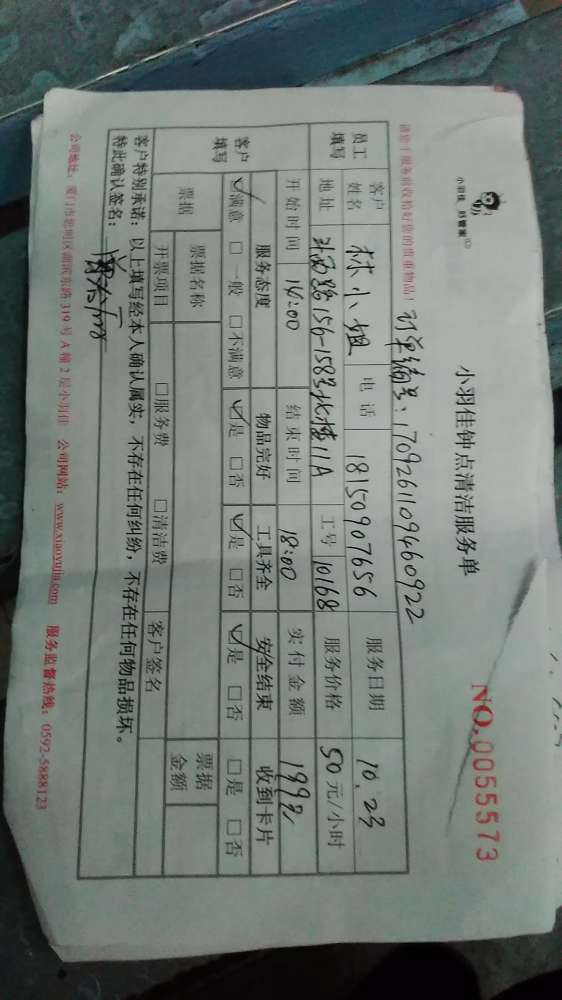 小羽佳 好管家
小羽佳钟点清洁服务单
NO.0055573
请您于服务前收拾好您的贵重物品!
订单编号:1709261109460922
员工填写 客户姓名 林小姐 电话 18150907656 服务日期 10.23
地址 斗西路156-158号北楼11A 工号 10168 服务价格 50元/小时
开始时间 14:00 结束时间 18:00 实付金额 199元
客户填写 服务态度 物品完好 工具齐全 安全结束 收到卡片
☑满意 □一般 □不满意 ☑是 □否 ☑是 □否 ☑是 □否 □是 □否
票据 票据名称 客户签名 票据金额
开票项目 □服务费 □清洁费
客户特别承诺:以上填写经本人确认属实,不存在任何纠纷,不存在任何物品损坏。
特此确认签名:
公司地址:厦门市思明区湖滨东路319号A幢2层小羽佳 公司网站:www.xiaoyujia.com 服务监督热线:0592-5888123